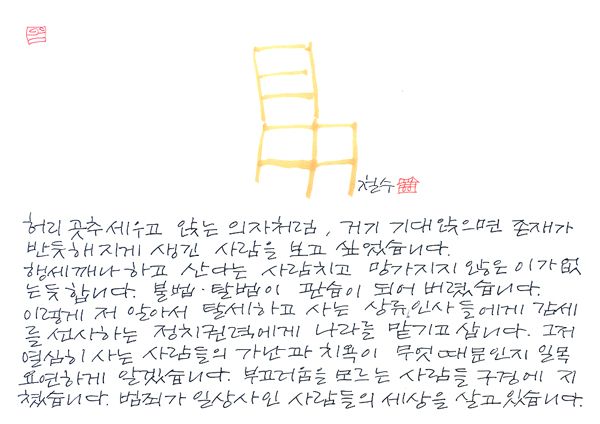 철수
허리 곳추세우고 앉는 의자처럼, 거기 기대앉으면 존재가
반듯해지게 생긴 사람을 보고 싶었습니다.
행세깨나 하고 산다는 사람치고 망가지지 않은 이가 없
는듯 합니다. 불법·탈법이 관습이 되어 버렸습니다.
이렇게 저 알아서 탈세하고 사는 상류인사들에게 감세
를 선사하는 정치권력에게 나라를 맡기고 삽니다. 그저
열심히 사는 사람들의 가난과 치욕이 무엇때문인지 일목
요연하게 알겠습니다. 부끄러움을 모르는 사람들 구경에 지
쳤습니다. 범죄가 일상사인 사람들의 세상을 살고있습니다.